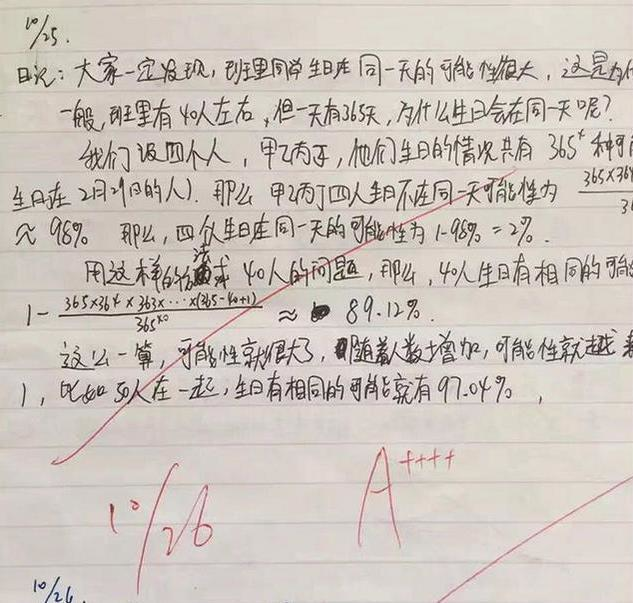 10/25.
日记:大家一定发现,班里同学生日在同一天的可能性很大,这是为什
一般,班里有40人左右,但一天有365天,为什么生日会在同一天呢?
我们设四个人,甲乙丙丁,他们生日的情况共有365⁴种可
生日在2月29日的人).那么甲乙丙丁四人生日不在同一天可能性为 365×364
≈98% 那么,四人生日在同一天的可能性为1-98%=2%.
用这样的方法求40人的问题,那么,40人生日有相同的可能
1-365×364×363×···×(365-40+1)/365⁴⁰≈89.12%.
这么一算,可能性就很大了,随着人数增加,可能性就越来
1,比如50人在一起,生日有相同的可能就有97.04%,
10/26 A++++
10/26.